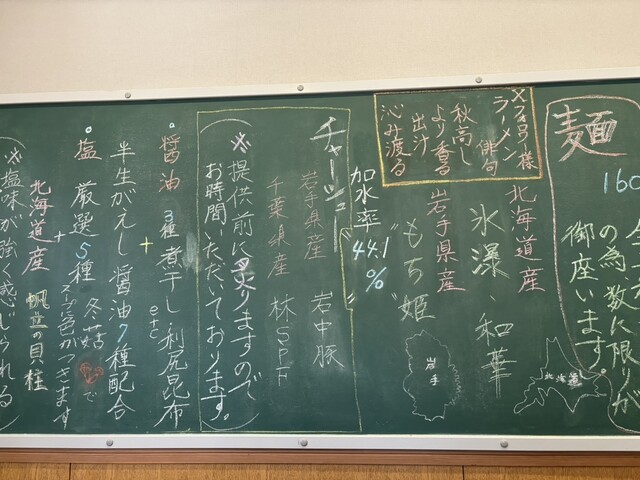 麺
160
の為、数に限りが
御座います。
Xフォロワー様
ラーメン俳句
秋高し
より香る
出汁
沁み渡る
北海道産
氷瀑、和華
岩手県産
もち姫
北海道
岩手
加水率
44.1
%
チャーシュー
岩手県産 岩中豚
千葉県産 林SPF
※提供前に炙りますので
お時間いただいております。
醤油 3種煮干し 利尻昆布
etc
+
半生がえし 醤油7種配合
塩 厳選5種 冬菇で
スープに色がつきます
+
北海道産 帆立の貝柱
(※塩味が強く感じられる